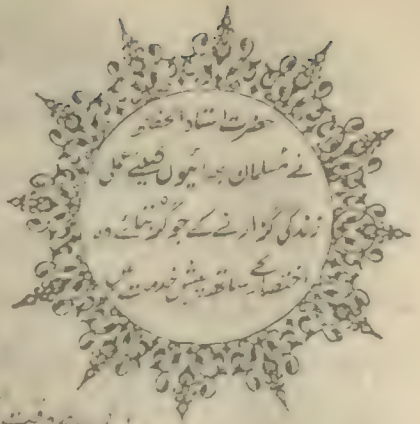 حضرت استاذ المحترم
نے مسلمان بھائیوں کیلئے عملی
زندگی گزارنے کے جو گُر بتائے وہ
اختصار کے ساتھ پیش خدمت ہیں